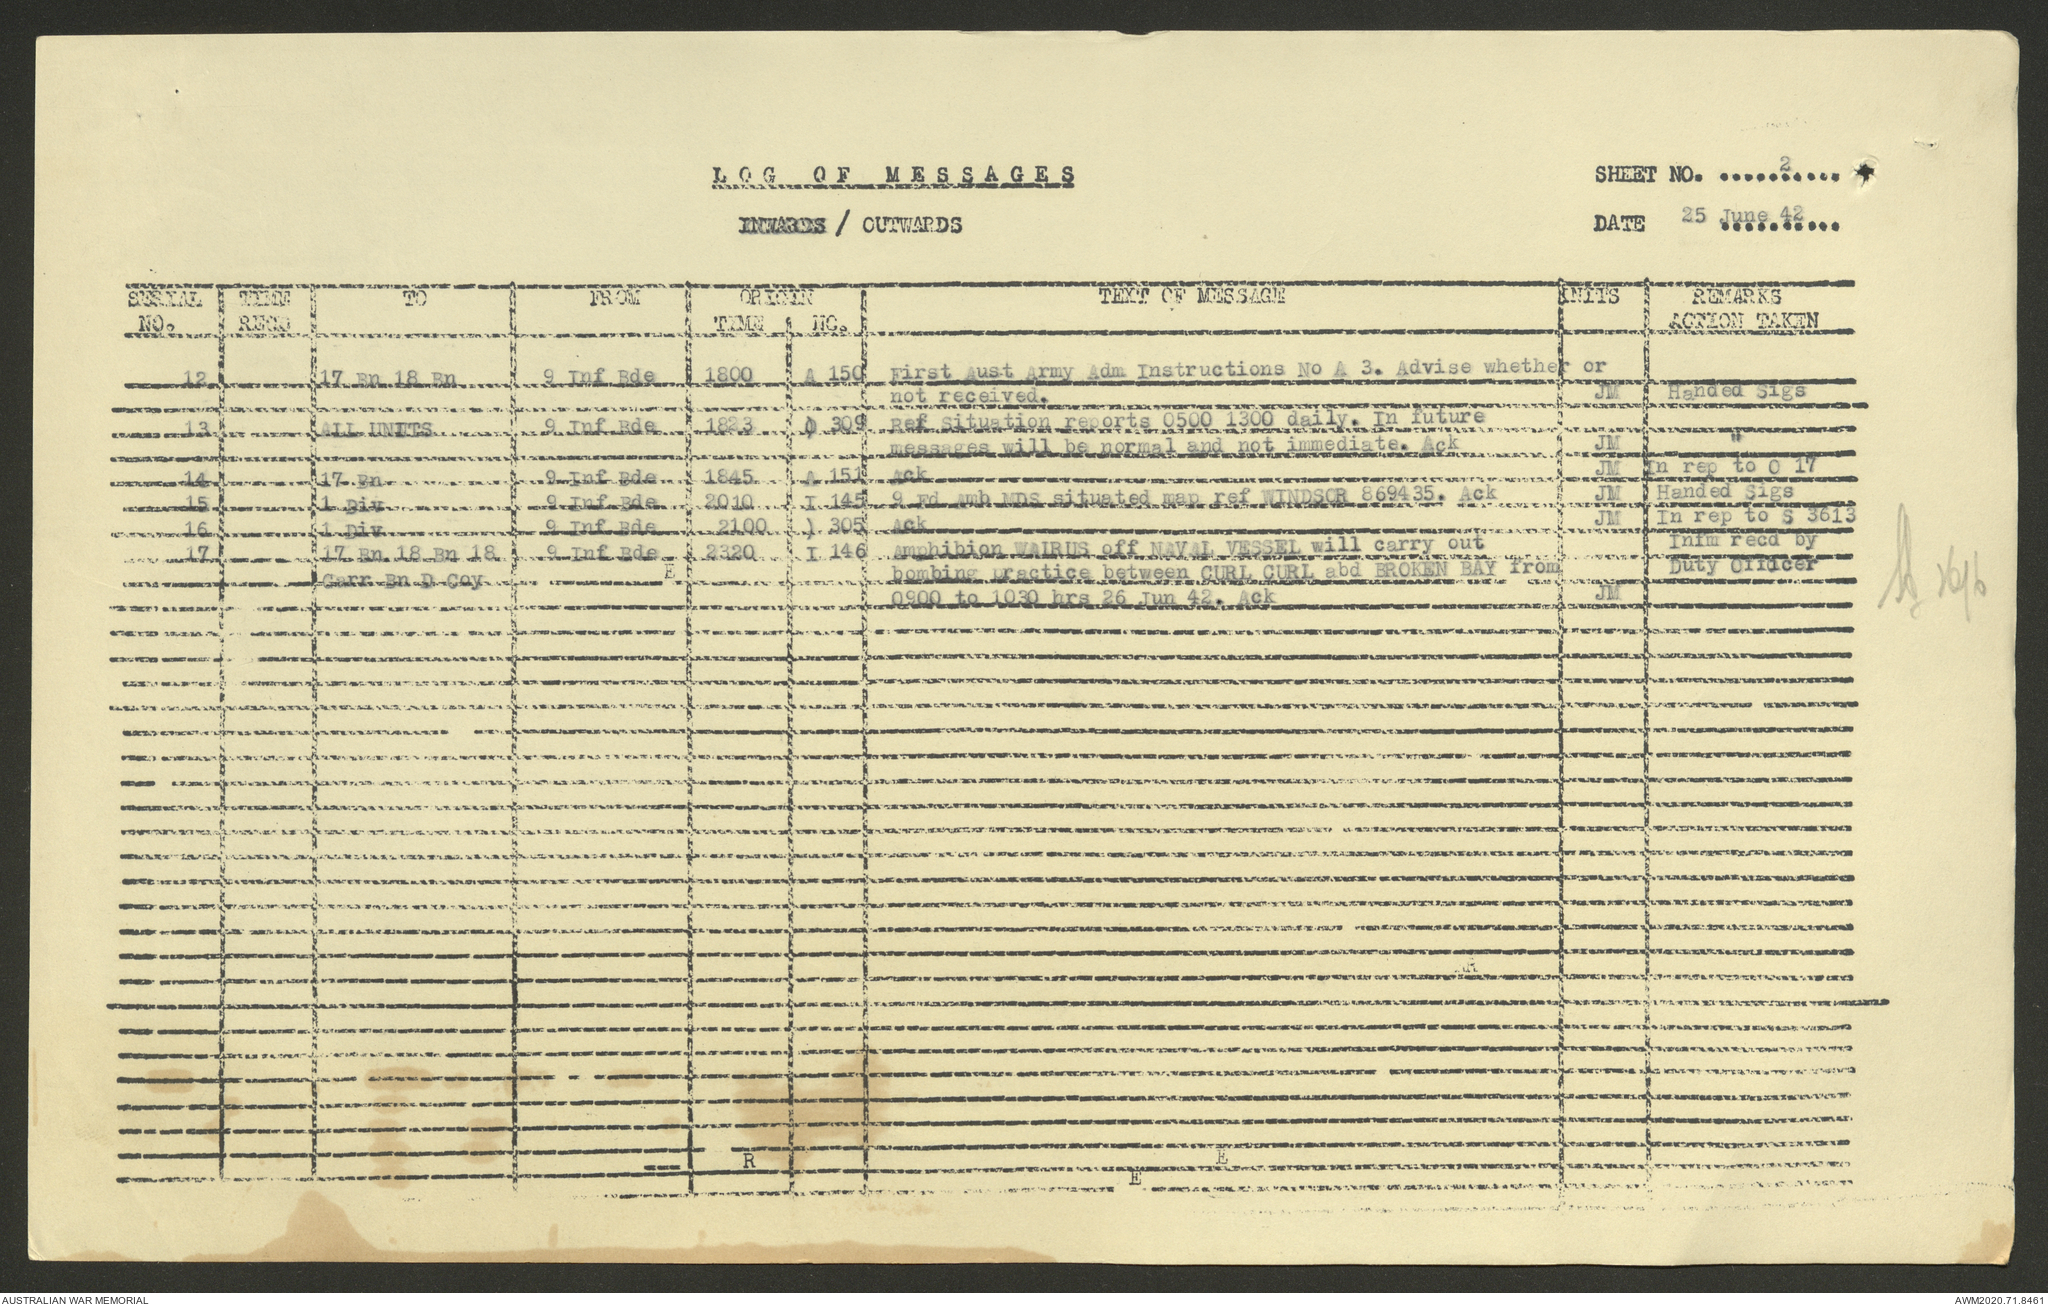 LOG OF MESSAGES
SHEET NO. ..........2
INWARDS / OUTWARDS
DATE 25 June 42
SERIAL NO. TIME RECD TO FROM ORIGIN TIME NO. TEXT OF MESSAGE INITS REMARKS ACTION TAKEN
12 17 Bn 18 Bn 9 Inf Bde 1800 A 150 First Aust Army Adm Instructions No A 3. Advise whether or
not received. JM Handed Sigs
13 ALL UNITS 9 Inf Bde 1823 O 309 Ref Situation reports 0500 1300 daily. In future
messages will be normal and not immediate. Ack JM "
14 17 Bn 9 Inf Bde 1845 A 151 Ack JM In rep to O 17
15 1 Div 9 Inf Bde 2010 I 145 9 Fd Amb MDS situated map ref WINDSOR 869435. Ack JM Handed Sigs
16 1 Div 9 Inf Bde 2100 ) 305 Ack JM In rep to S 3613
17 17 Bn 18 Bn 18 9 Inf Bde 2320 I 146 Amphibion WALRUS off NAVAL VESSEL will carry out Infm recd by
Garr Bn D Coy E bombing practice between CURL CURL abd BROKEN BAY from Duty Officer
0900 to 1030 hrs 26 Jun 42. Ack JM
R
E
E
AUSTRALIAN WAR MEMORIAL
AWM2020.71.8461